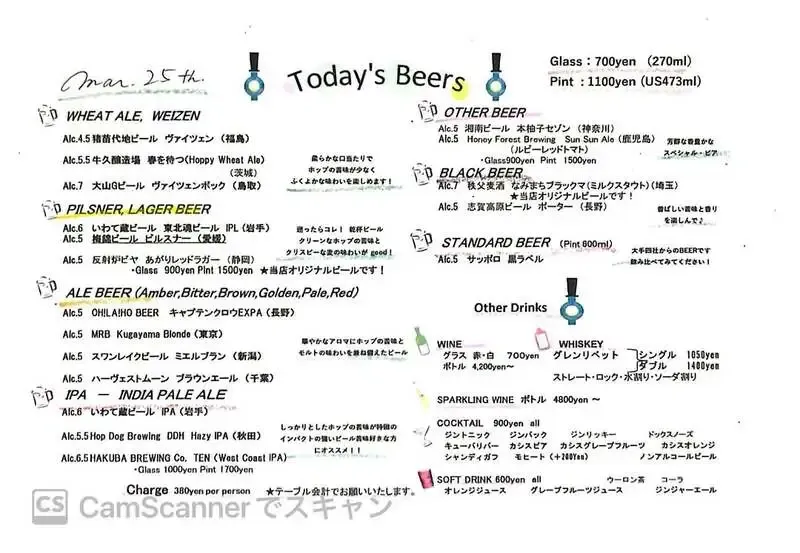 Mar. 25th.
Today's Beers
Glass : 700yen (270ml)
Pint : 1100yen (US473ml)
WHEAT ALE, WEIZEN
Alc.4.5 猪苗代地ビール ヴァイツェン (福島)
Alc.5.5 牛久醸造場 春を待つ(Hoppy Wheat Ale)
(茨城)
Alc.7 大山Gビール ヴァイツェンボック (鳥取)
柔らかな口当たりで
ホップの苦味が少なく
ふくよかな味わいを楽しめます!
PILSNER, LAGER BEER
Alc.6 いわて蔵ビール 東北魂ビール IPL (岩手)
Alc.5 梅錦ビール ピルスナー (愛媛)
Alc.5 反射炉ビヤ あがりレッドラガー (静岡)
・Glass 900yen Pint 1500yen ★当店オリジナルビールです!
迷ったらコレ! 乾杯ビール
クリーンなホップの苦味と
クリスピーな麦の味わいが good!
ALE BEER (Amber,Bitter,Brown,Golden,Pale,Red)
Alc.5 OH!LA!HO BEER キャプテンクロウEXPA (長野)
Alc.5 MRB Kugayama Blonde (東京)
Alc.5 スワンレイクビール ミエルブラン (新潟)
Alc.5 ハーヴェストムーン ブラウンエール (千葉)
華やかなアロマにホップの苦味と
モルトの味わいを兼ね備えたビール
IPA － INDIA PALE ALE
Alc.6 いわて蔵ビール IPA (岩手)
Alc.5.5 Hop Dog Brewing DDH Hazy IPA (秋田)
Alc.6.5 HAKUBA BREWING Co. TEN (West Coast IPA)
・Glass 1000yen Pint 1700yen
しっかりとしたホップの苦味が特徴の
インパクトの強いビール苦味好きな方
にオススメ!!
Charge 380yen per person ★テーブル会計でお願いいたします。
OTHER BEER
Alc.5 湘南ビール 本柚子セゾン (神奈川)
Alc.5 Honey Forest Brewing Sun Sun Ale (鹿児島)
(ルビーレッドトマト)
・Glass900yen Pint 1500yen
芳醇な香豊かな
スペシャル・ビア
BLACK BEER
Alc.7 秩父麦酒 なみまちブラックマ(ミルクスタウト) (埼玉)
★当店オリジナルビールです!
Alc.5 志賀高原ビール ポーター (長野)
香ばしい苦味と香り
を楽しんで♪
STANDARD BEER (Pint 800ml)
Alc.5 サッポロ 黒ラベル
大手四社からのBEERです
飲み比べてみてください!
Other Drinks
WINE
グラス 赤・白 700yen
ボトル 4,200yen～
WHISKEY
グレンリベット シングル 1050yen
ダブル 1400yen
ストレート・ロック・水割り・ソーダ割り
SPARKLING WINE ボトル 4800yen ～
COCKTAIL 900yen all
ジントニック ジンバック ジンリッキー ドックスノーズ
キューバリバー カシスビア カシスグレープフルーツ カシスオレンジ
シャンディガフ モヒート (+200Yen) ノンアルコールビール
SOFT DRINK 600yen all ウーロン茶 コーラ
オレンジジュース グレープフルーツジュース ジンジャーエール
CS CamScanner でスキャン